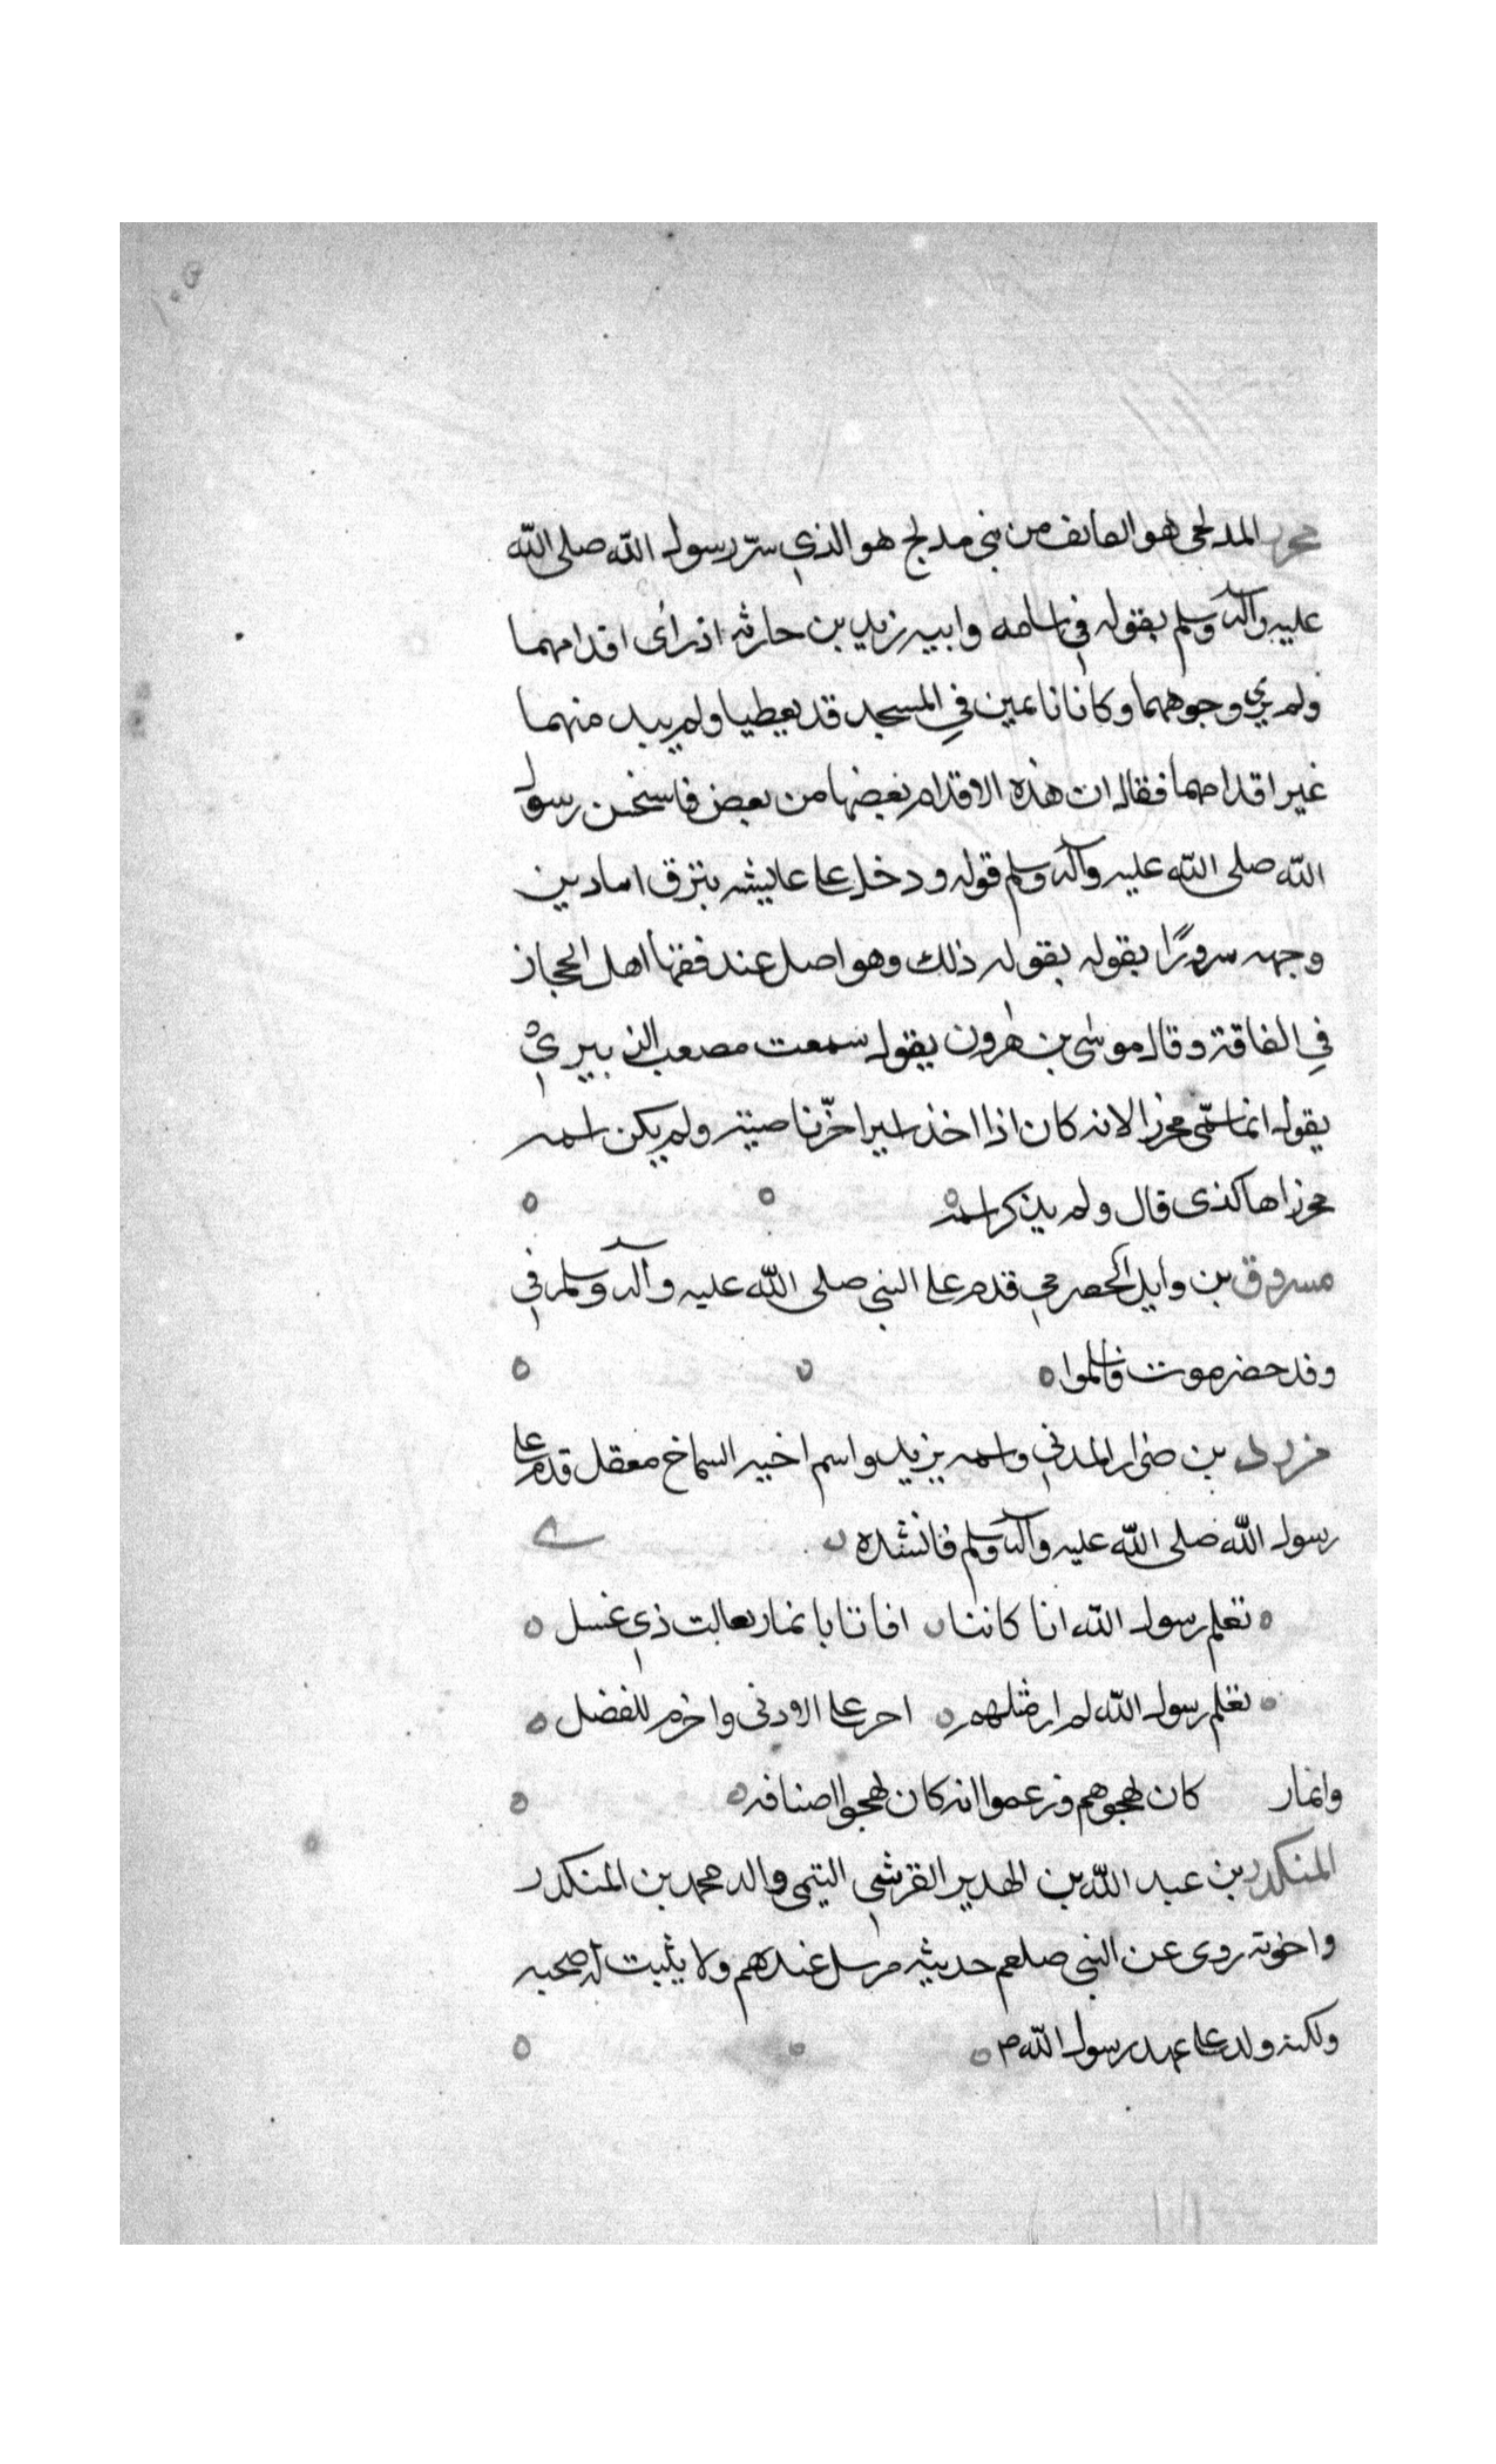 محرز المدلجى هو العايف من بني مدلج هو الذي سرّ رسول الله صلى الله
عليه وآله وسلم بقوله في اسامه وابيه زيد بن حارثه اذ رأى اقدامهما
ولم يري وجوههما وكانا نايمين في المسجد قد يعطيا ولم يبد منهما
غير اقدامهما فقال ان هذه الاقدام بعضها من بعض فاسخن رسول
الله صلى الله عليه وآله وسلم قوله ودخل على عايشه بتزق اسادين
وجهه سرورًا بقوله بقوله ذلك وهو اصل عند فقها اهل الحجاز
في الفاقة وقال موسى بن هرون يقول سمعت مصعب الزبيري
يقول انما سمّى محرزا لانه كان اذا اخذ اسيرا خزّ ناصيته ولم يكن اسمه
محرزا هاكذى قال ولم يذكر اسمه
مسروق بن وايل الحصرمي قدم على النبي صلى الله عليه وآله وسلم في
وفد حضرموت فاسلموا
مزرد بن ضرار المدني واسمه يزيد واسم اخيه السماخ معقل قدم على
رسول الله صلى الله عليه وآله وسلم فانشده
تعلم رسول الله انا كاننا افاتا بانمار بعالت ذي غسل
تعلم رسول الله لم ار مثلهم احر على الادنى واخرم للفضل
وانمار كان يهجوهم وزعموا انه كان يهجوا اصنافه
المنكدر بن عبد الله بن الهدير القرشي التيمى والد محمد بن المنكدر
واخوته روى عن النبي صلعم حديثه مرسل عندهم ولا يثبت له صحبه
ولكنه ولد على عهد رسول الله ص